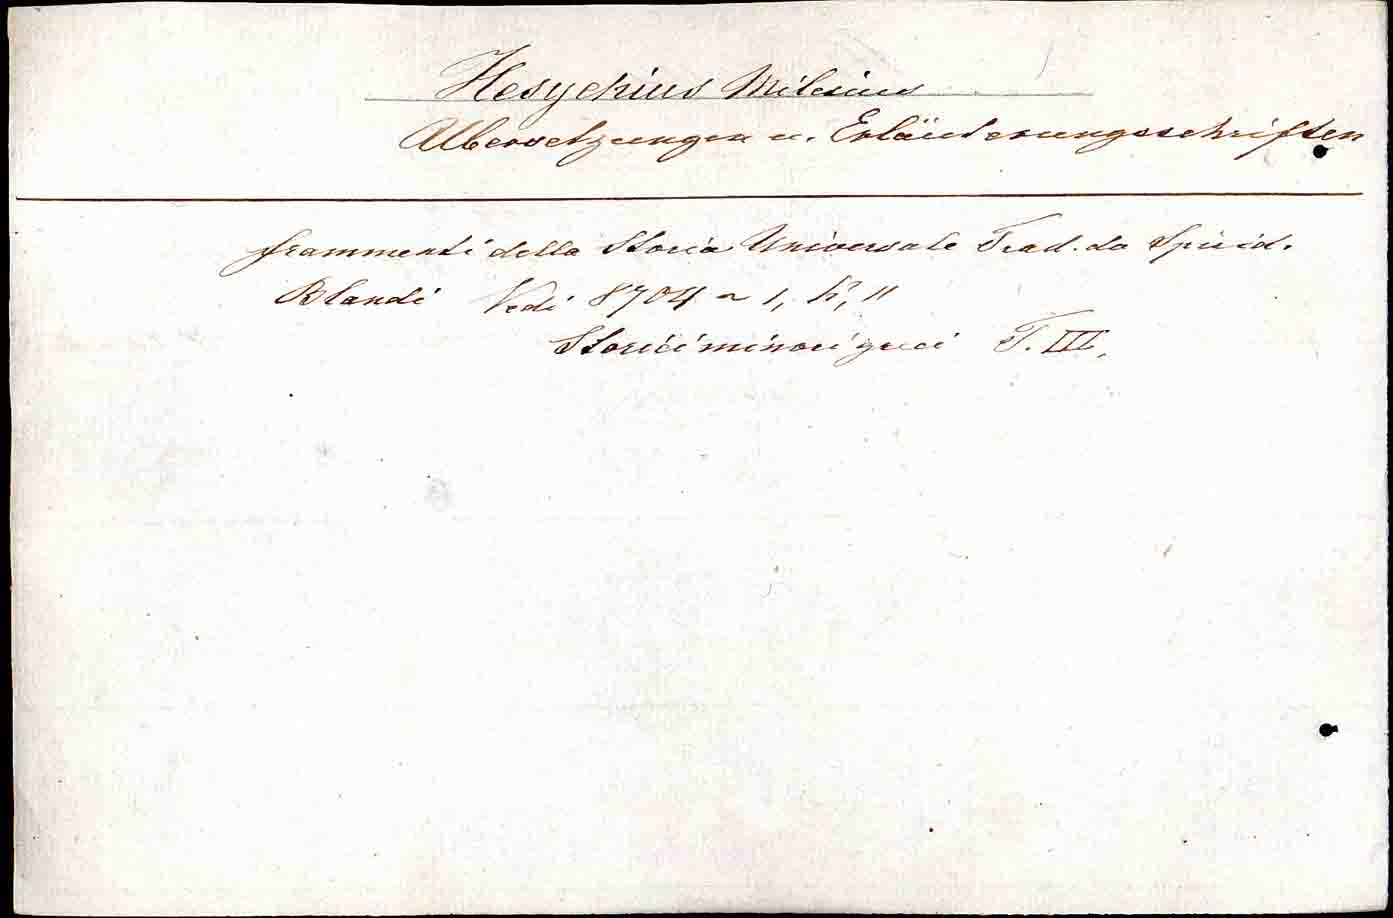 Hesychius Milesius
Übersetzungen u. Erläuterungsschriften
frammenti della Storia Universale Trad. da Spirid.
Blandi Vedi 8704
Storici minori greci T. III,